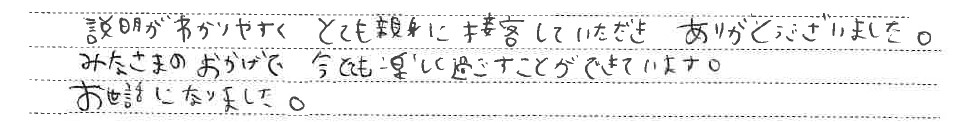 説明がわかりやすく とても親身に接客していただき ありがとうございました。
みなさまのおかげで 今とても楽しく過ごすことができています。
お世話になりました。